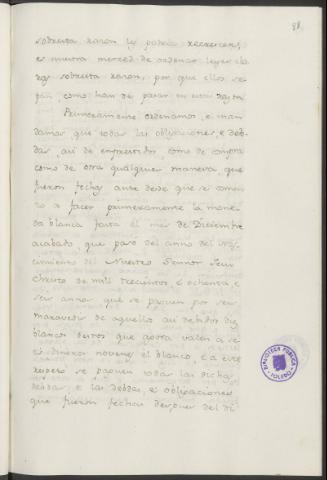 88.
sobresta raron les podria recrescer,
es nuestra merced de ordenar leyes cla
ras sobresta raron, por que ellos se
pan como han de pasar en esta rason
Primeramente ordenamos, e man
damos que todas las obligaciones, e deb
das, asi de emprestidos, como de compra
como de otra qualquier manera que
fueron fechas ante desde que se comen
zo a facer primeramente la mone
da blanca fasta el mes de Diciembre
acabado, que paso del anno del Nas
cimiento del Nuestro Sennor Jesu
Christo de mil trecientos, e ochenta, e
seis annos que se paguen por seis
maravedis de aquellos asi debdos diez
blancos destos que agora valen a se
is dineros novenes el blanco, e a este
respeto se paguen todas las dichas
debdas. e las debdas, e obligaciones
que fueron fechas despues del di
BIBLIOTECA PUBLICA
TOLEDO